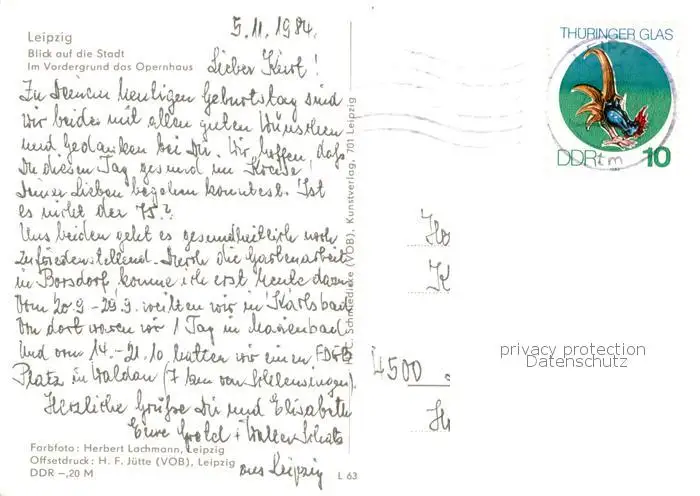 Leipzig
Blick auf die Stadt
Im Vordergrund das Opernhaus
5.11.1984
Lieber Karl!
Zu Deinem heutigen Geburtstag sind
wir beide mit allen guten Wünschen
und Gedanken bei Dir. Wir hoffen, daß
Du diesen Tag gesund im Kreise
Deiner Lieben begehen konntest. Ist
es nicht der 75.?
Uns beiden geht es gesundheitlich noch
zufriedenstellend. Durch die Gartenarbeit
in Borsdorf komme ich erst heute dazu.
Vom 20.9 - 29.9. weilten wir in Karlsbad
Von dort waren wir 1 Tag in Marienbad.
Und vom 14. - 21.10 hatten wir einen FDGB
Platz in Waldau (7 km von Schleusingen).
Herzliche Grüße Dir und Elisabeth
Eure + Walter
aus Leipzig
Farbfoto: Herbert Lachmann, Leipzig
Offsetdruck: H. F. Jütte (VOB), Leipzig
DDR -,20 M
L 63
C. Schmiedicke (VOB), Kunstverlag, 701 Leipzig
THÜRINGER GLAS
DDR
10
1983
4500
privacy protection
Datenschutz